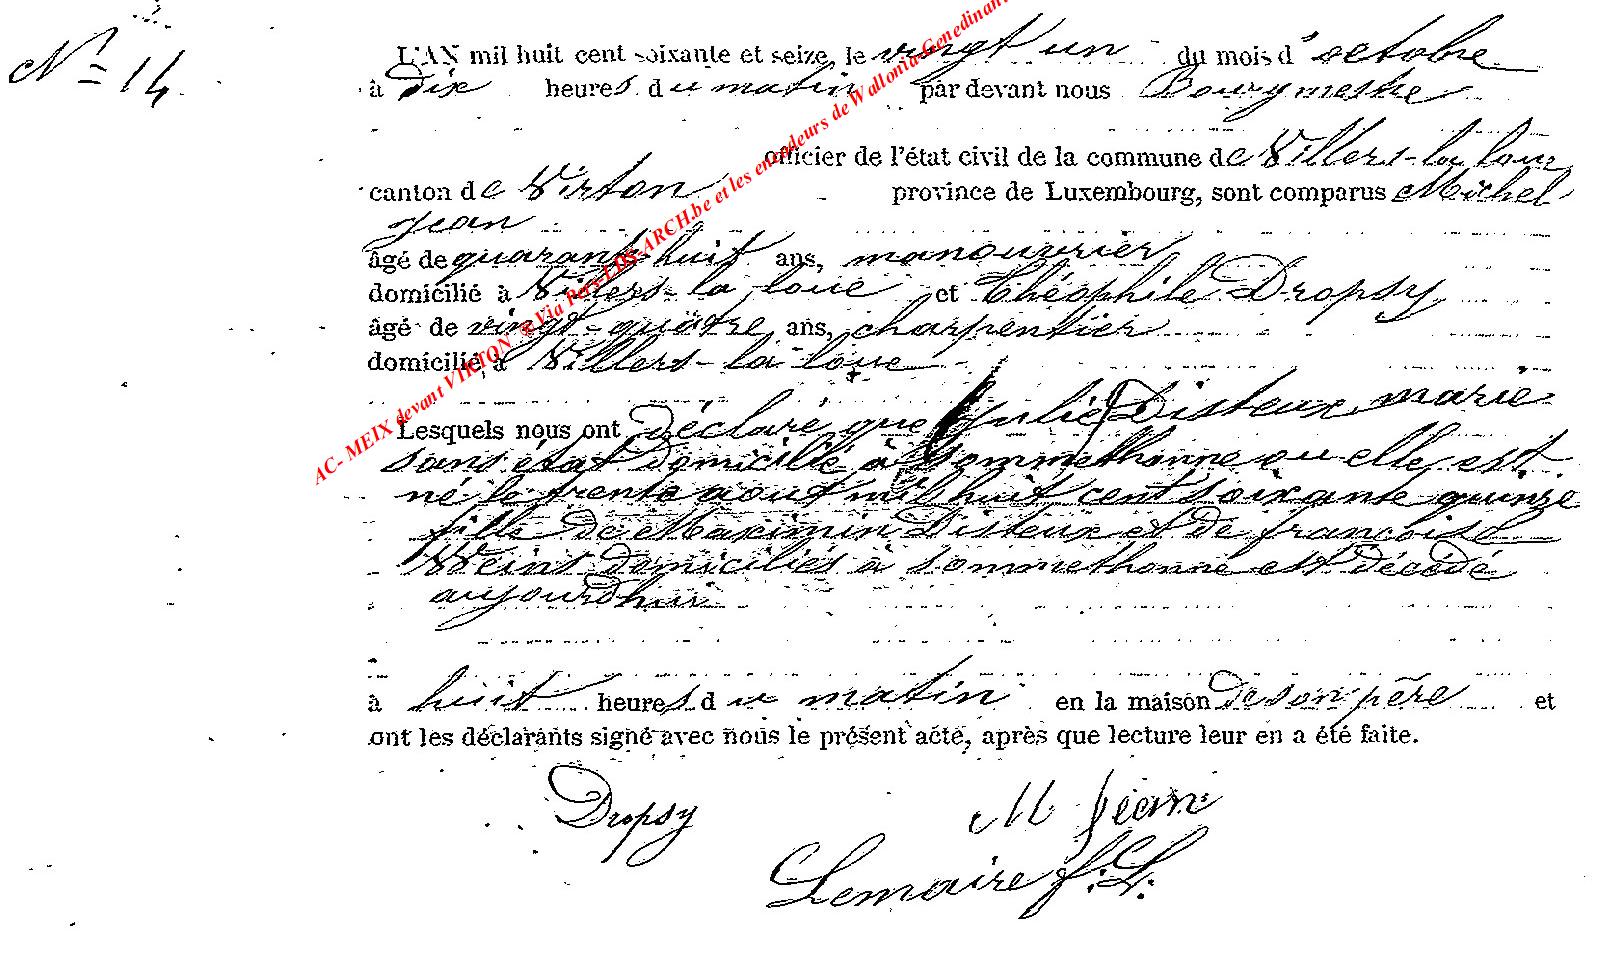 Nº 14
L'AN mil huit cent soixante et seize, le vingt un du mois d'octobre
à Dix heures du matin par devant nous Bourgmestre
officier de l'état civil de la commune de Villers-la loue
canton de Virton province de Luxembourg, sont comparus Michel
Jean
âgé de quarant-huit ans, manouvrier
domicilié à Villers-la loue et Théophile Dropsy
âgé de vingt-quatre ans, charpentier
domicilié à Villers-la loue
Lesquels nous ont Déclaré que Julie Disteux marie
sans état domicilié à Sommethonne ou elle est
né le trente aout mil huit cent soixante quinze
fille de Maximin Disteux et de françoise
Weins domiciliés à Sommethonne est décédé
aujourdhui
à huit heures du matin en la maison de son père et
ont les déclarants signé avec nous le présent acte, après que lecture leur en a été faite.
Dropsy M Jean
Lemaire f. L.
AC- MEIX devant VIRTON @Via Pers LDS-ARCH.be et les encodeurs de Wallonia Genedinant